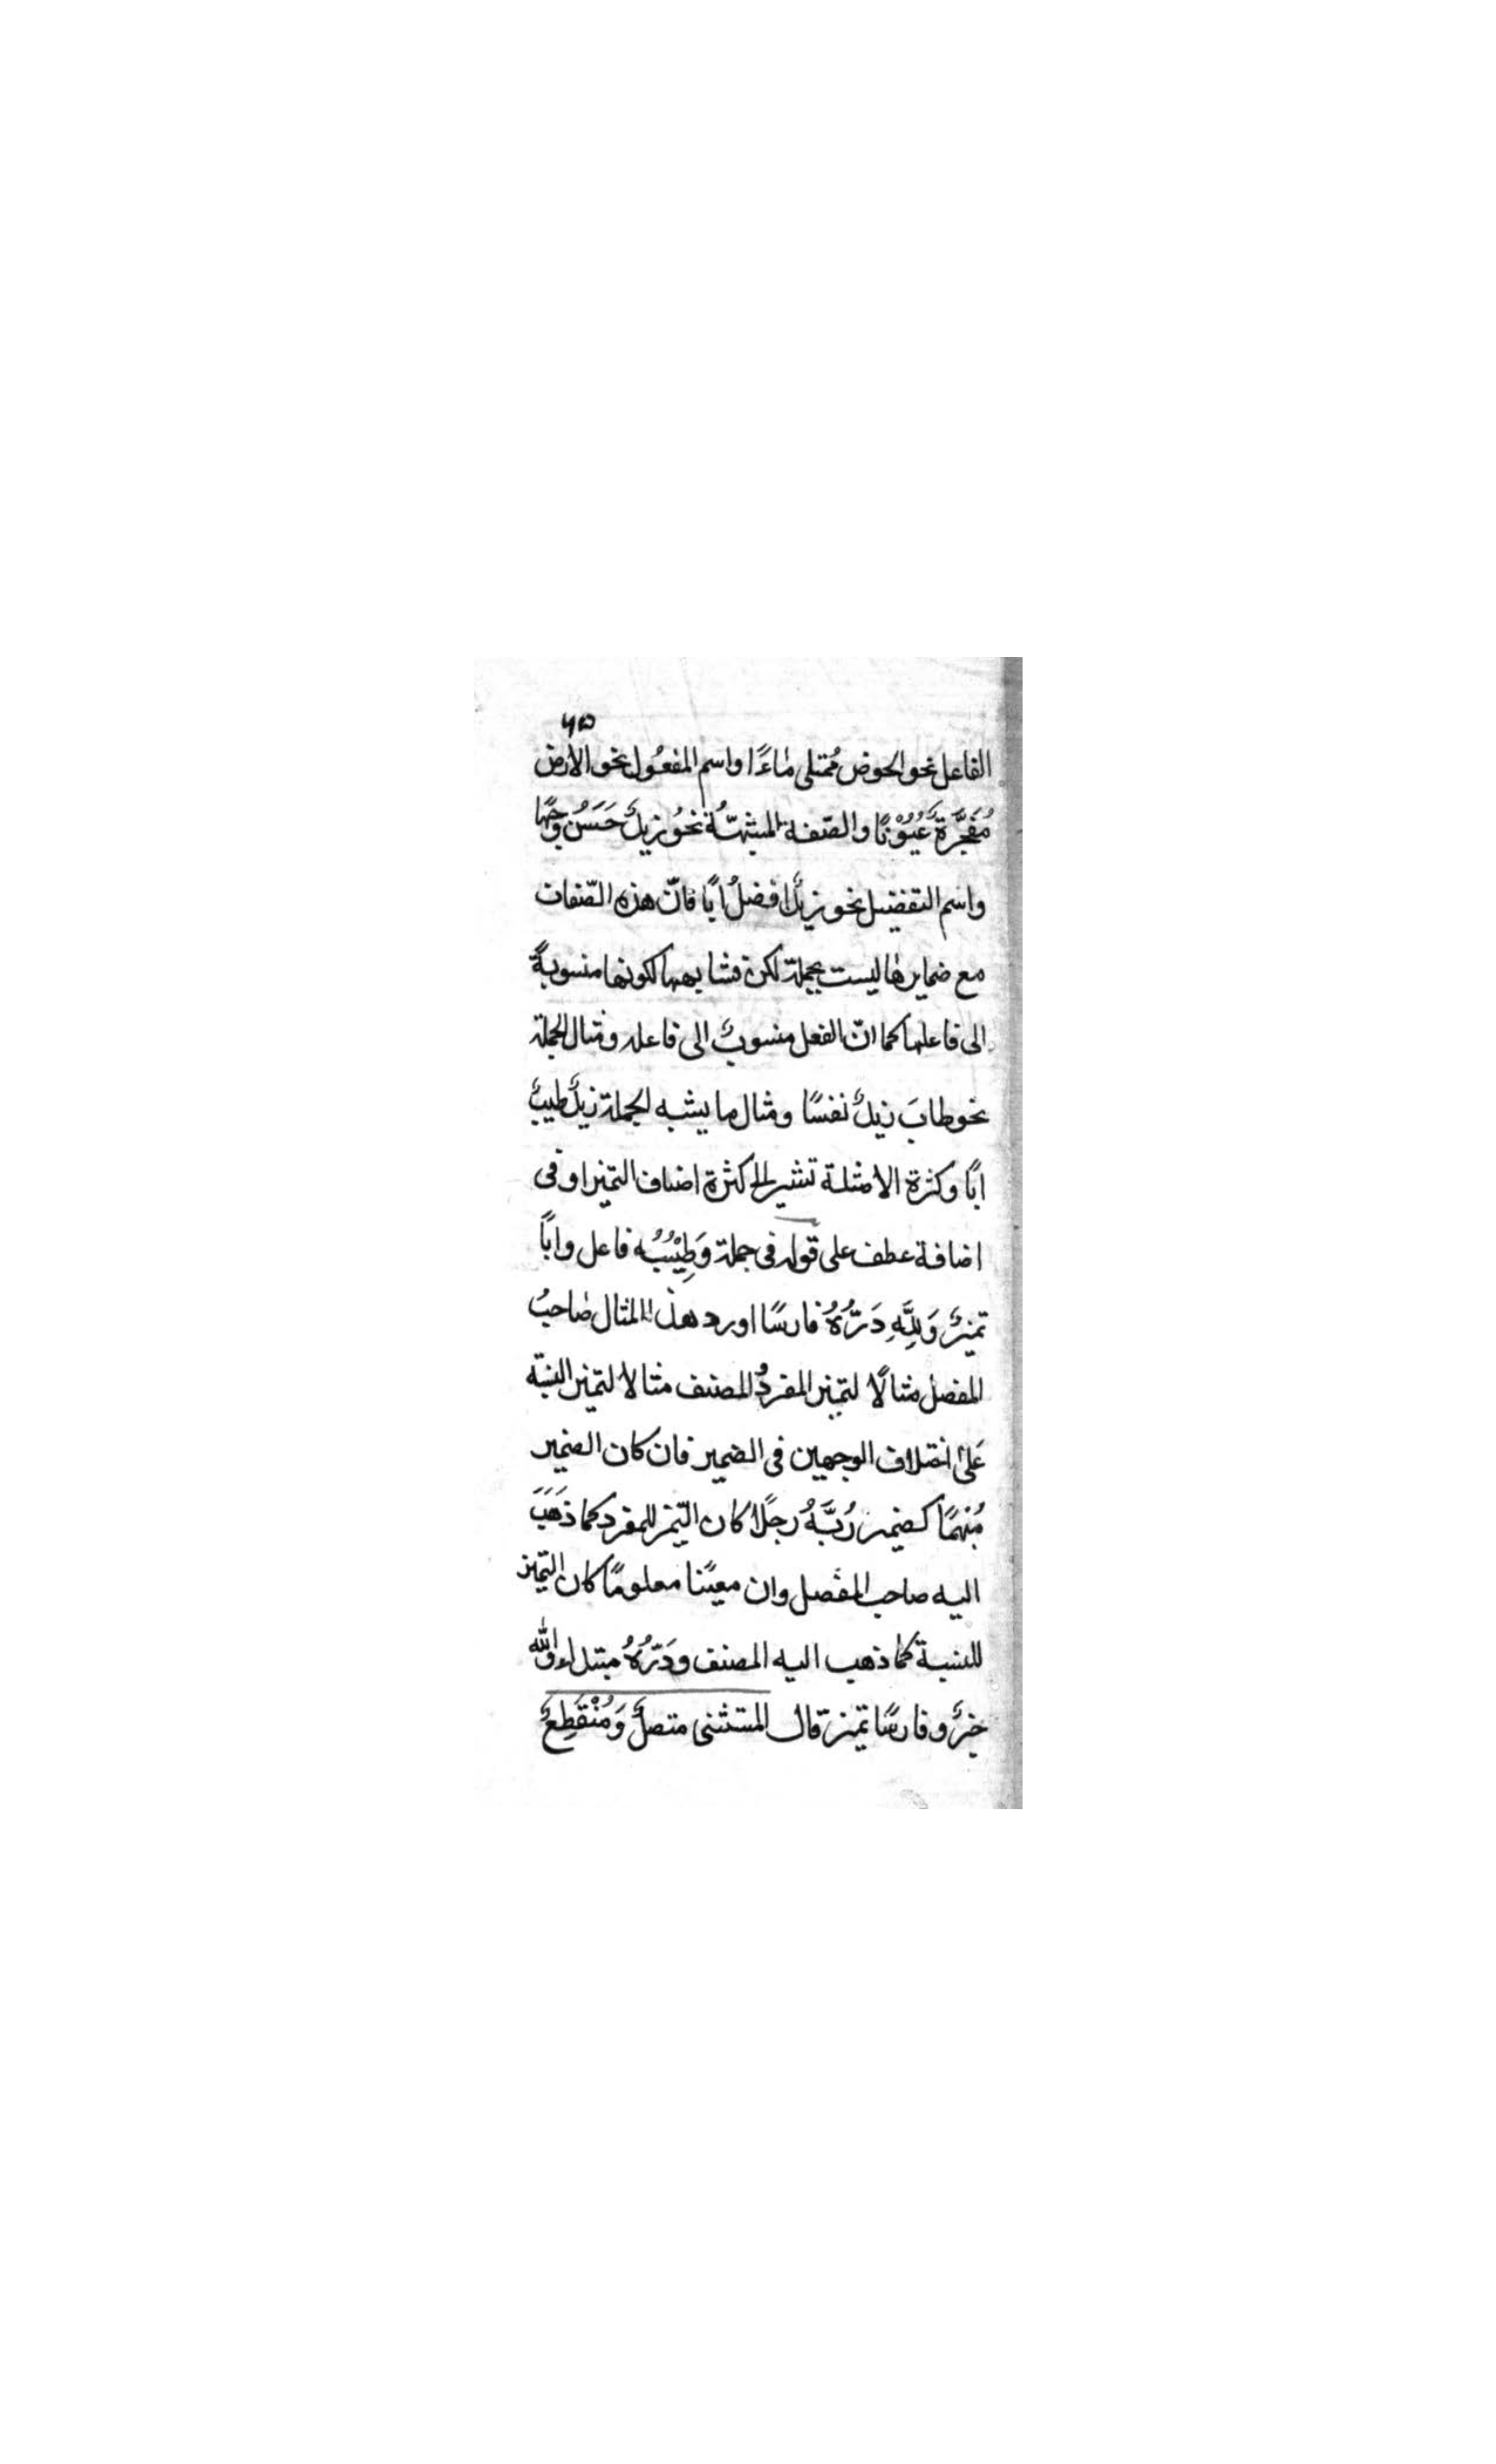 ٦٥
الفاعل نحو الحوض مُمتلى ماءً واسم المفعُول نحو الارض
مُفَجَّرَةٌ عُيُوْنًا والصّفة المشبّهةُ نحوُ زيدٌ حَسَنُ وجهًا
واسم التفضيل نحو زيدٌ افضلُ ابًا فانّ هذه الصّفات
مع ضمايرها ليست بجملة لكن مشابهها لكونها منسوبةً
الى فاعلها كما انّ الفعل منسوبٌ الى فاعله ومثال الجملة
نحو طابَ زيدٌ نفسًا ومثال ما يشبه الجملة زيدٌ طيبٌ
ابًا وكثرة الامثلة تشير الى كثرة اصناف التميز او فى
اضافة عطف على قوله فى جملة وَطِيْبُهُ فاعل وابًا
تميزٌ وَلِلَّهِ دَرُّهُ فارسًا اورد هذا المثال صاحبُ
المفصل مثالًا لتميز المفرد والمصنف مثالا لتميز النسبة
عَلى اختلاف الوجهين فى الضمير فان كان الضمير
مُبْهمًا كضمير رُبَّهُ رجلًا كان التميز للمفرد كما ذَهَبَ
اليه صاحب المفصل وان معيّنا معلومًا كان التميز
للنسبة كما ذهب اليه المصنف ودَرُّهُ مبتداء ولله
خبرٌ وفارسًا تميز قال المستثنى متصلٌ وَمُنْقَطِعٌ